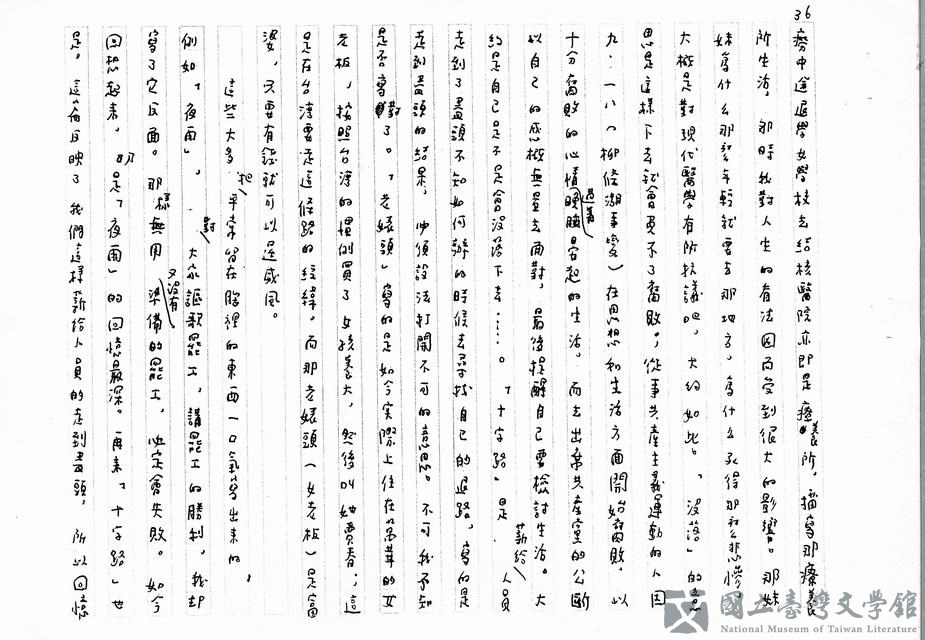 36
療中途退學女學校去結核醫院亦即是療養所,描寫那療養
所生活,那時我對人生的看法因而受到很大的影響。那妹
妹為什么那么年輕就要去那地方,為什么死得那么悲慘。
大概是對現代醫學有所抗議吧,大約如此。「沒落」的意
思是這樣下去就會免不了腐敗;從事共產主義運動的人因
九.一八(柳條湖事變)在思想和生活方面開始腐敗,以
十分腐敗的心情過著晚睡晏起的生活。而去出席共產黨的公斷
以自己的感概無量去面對,最後提醒自己要檢討生活。大
約是自己是不是會沒落下去……。「十字路」是薪給人員
走到了盡頭不知如何辦的時候去尋找自己的退路,寫的是
走到盡頭的結果,必須設法打開不可的意思。不可我不知
是否寫對了。「老婊頭」寫的是如今实際上住在萬華的女
老板,按照台灣的慣例買了女孩養大,然後叫她賣春;這
是在台灣要走這條路的經緯,而那老婊頭(女老板)是富
婆,只要有錢就可以逞威風。
這些大多把平常留在腦裡的東西一口氣寫出來的。
例如「夜雨」,對大家謳歌罷工,講罷工的勝利,我却
寫了它反面。那樣無用又沒有準備的罷工,必定會失敗。如今
回想起來,那是「夜雨」的回憶最深。再來「十字路」也
是,這篇反映了我們這樣薪給人員的走到盡頭,所以回憶
國立臺灣文學館
National Museum of Taiwan Literature